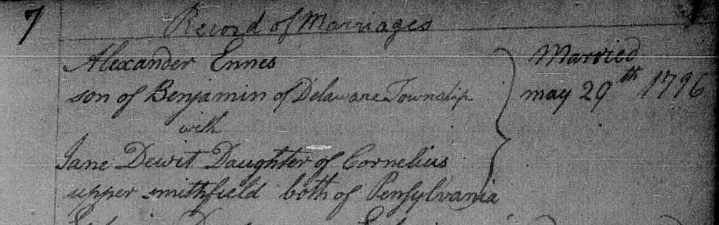 7
Record of Marriages
Alexander Ennes
son of Benjamin of Delaware Township
with
Jane Dewit Daughter of Cornelius
upper smithfield both of Pensylvania
Married
may 29th 1796